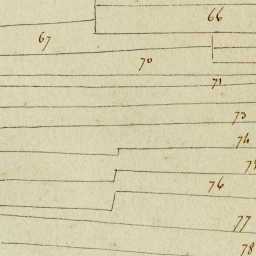 66
67
70
71
73
74
76
77
78